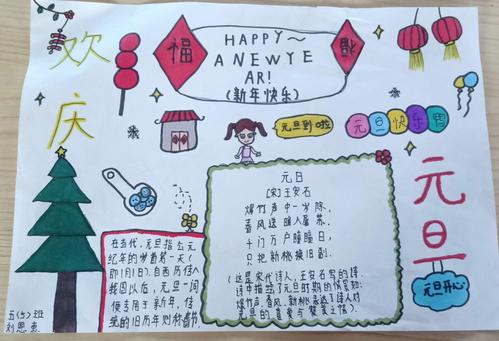 欢庆
福
福
HAPPY~
A NEWYE
AR!
(新年快乐)
元旦到啦
元旦快乐啊
元旦
元日
[宋]王安石
爆竹声中一岁除,
春风送暖入屠苏.
千门万户曈曈日,
只把新桃换旧剧.
(这是宋代诗人,王安石写的诗,
诗中描绘了元旦时期的情景如:
爆竹声,春风,新桃表达了诗人对
元旦的喜爱与赞美之情).
在当代,元旦指公元
纪年的岁首第一天
(即1月1日).自西历传入
我国以后,元旦一词
便专用于新年,传
统的旧历年则称春节
元旦开心
五(5)班